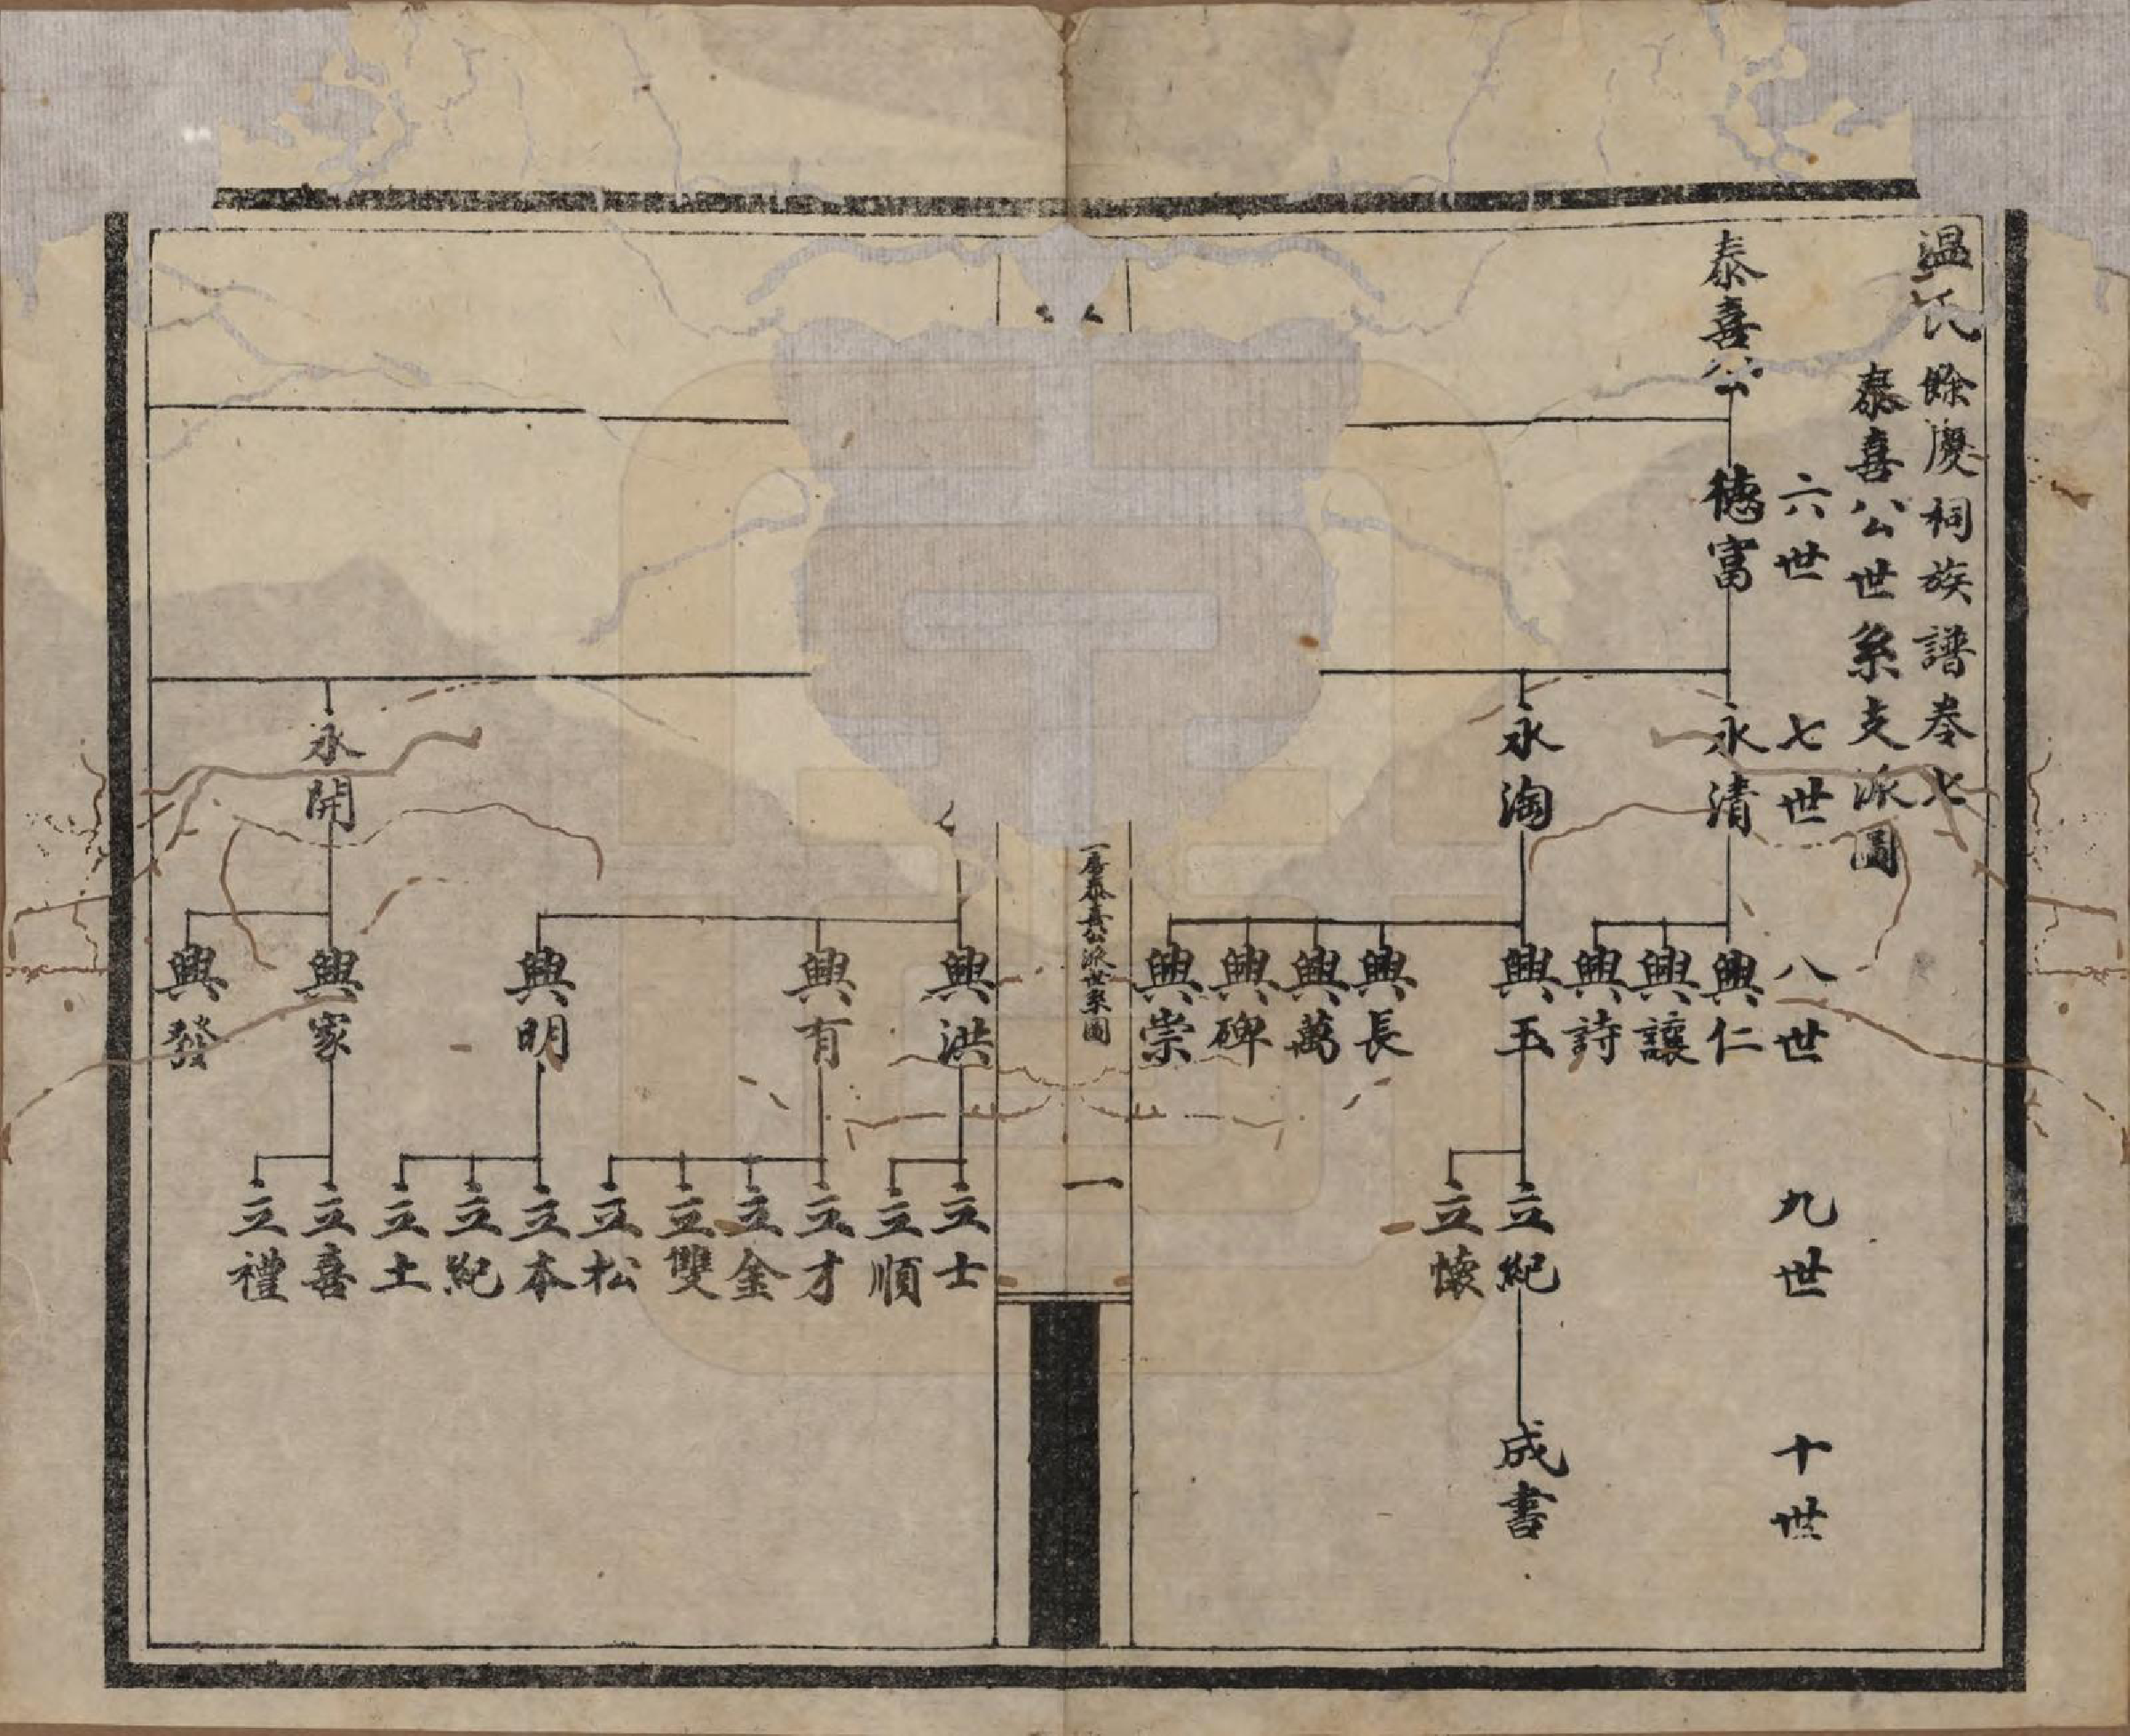 温氏餘慶祠族譜卷七
泰喜公世系支派圖
六世
七世
八世
九世
十世
泰喜公
德富
永清
興仁
興讓
興詩
永淘
興玉
立紀
成書
立懷
興長
興萬
興碑
興崇
一房泰喜公派世系圖
一
興洪
立士
立順
興有
立才
立金
立雙
立松
興明
立本
立紀
立土
永開
興家
立喜
立禮
興發